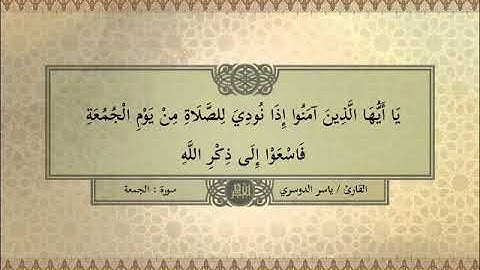 يَا أَيُّهَا الَّذِينَ آمَنُوا إِذَا نُودِيَ لِلصَّلَاةِ مِنْ يَوْمِ الْجُمُعَةِ
فَاسْعَوْا إِلَى ذِكْرِ اللَّهِ
القارئ / ياسر الدوسري سورة : الجمعة